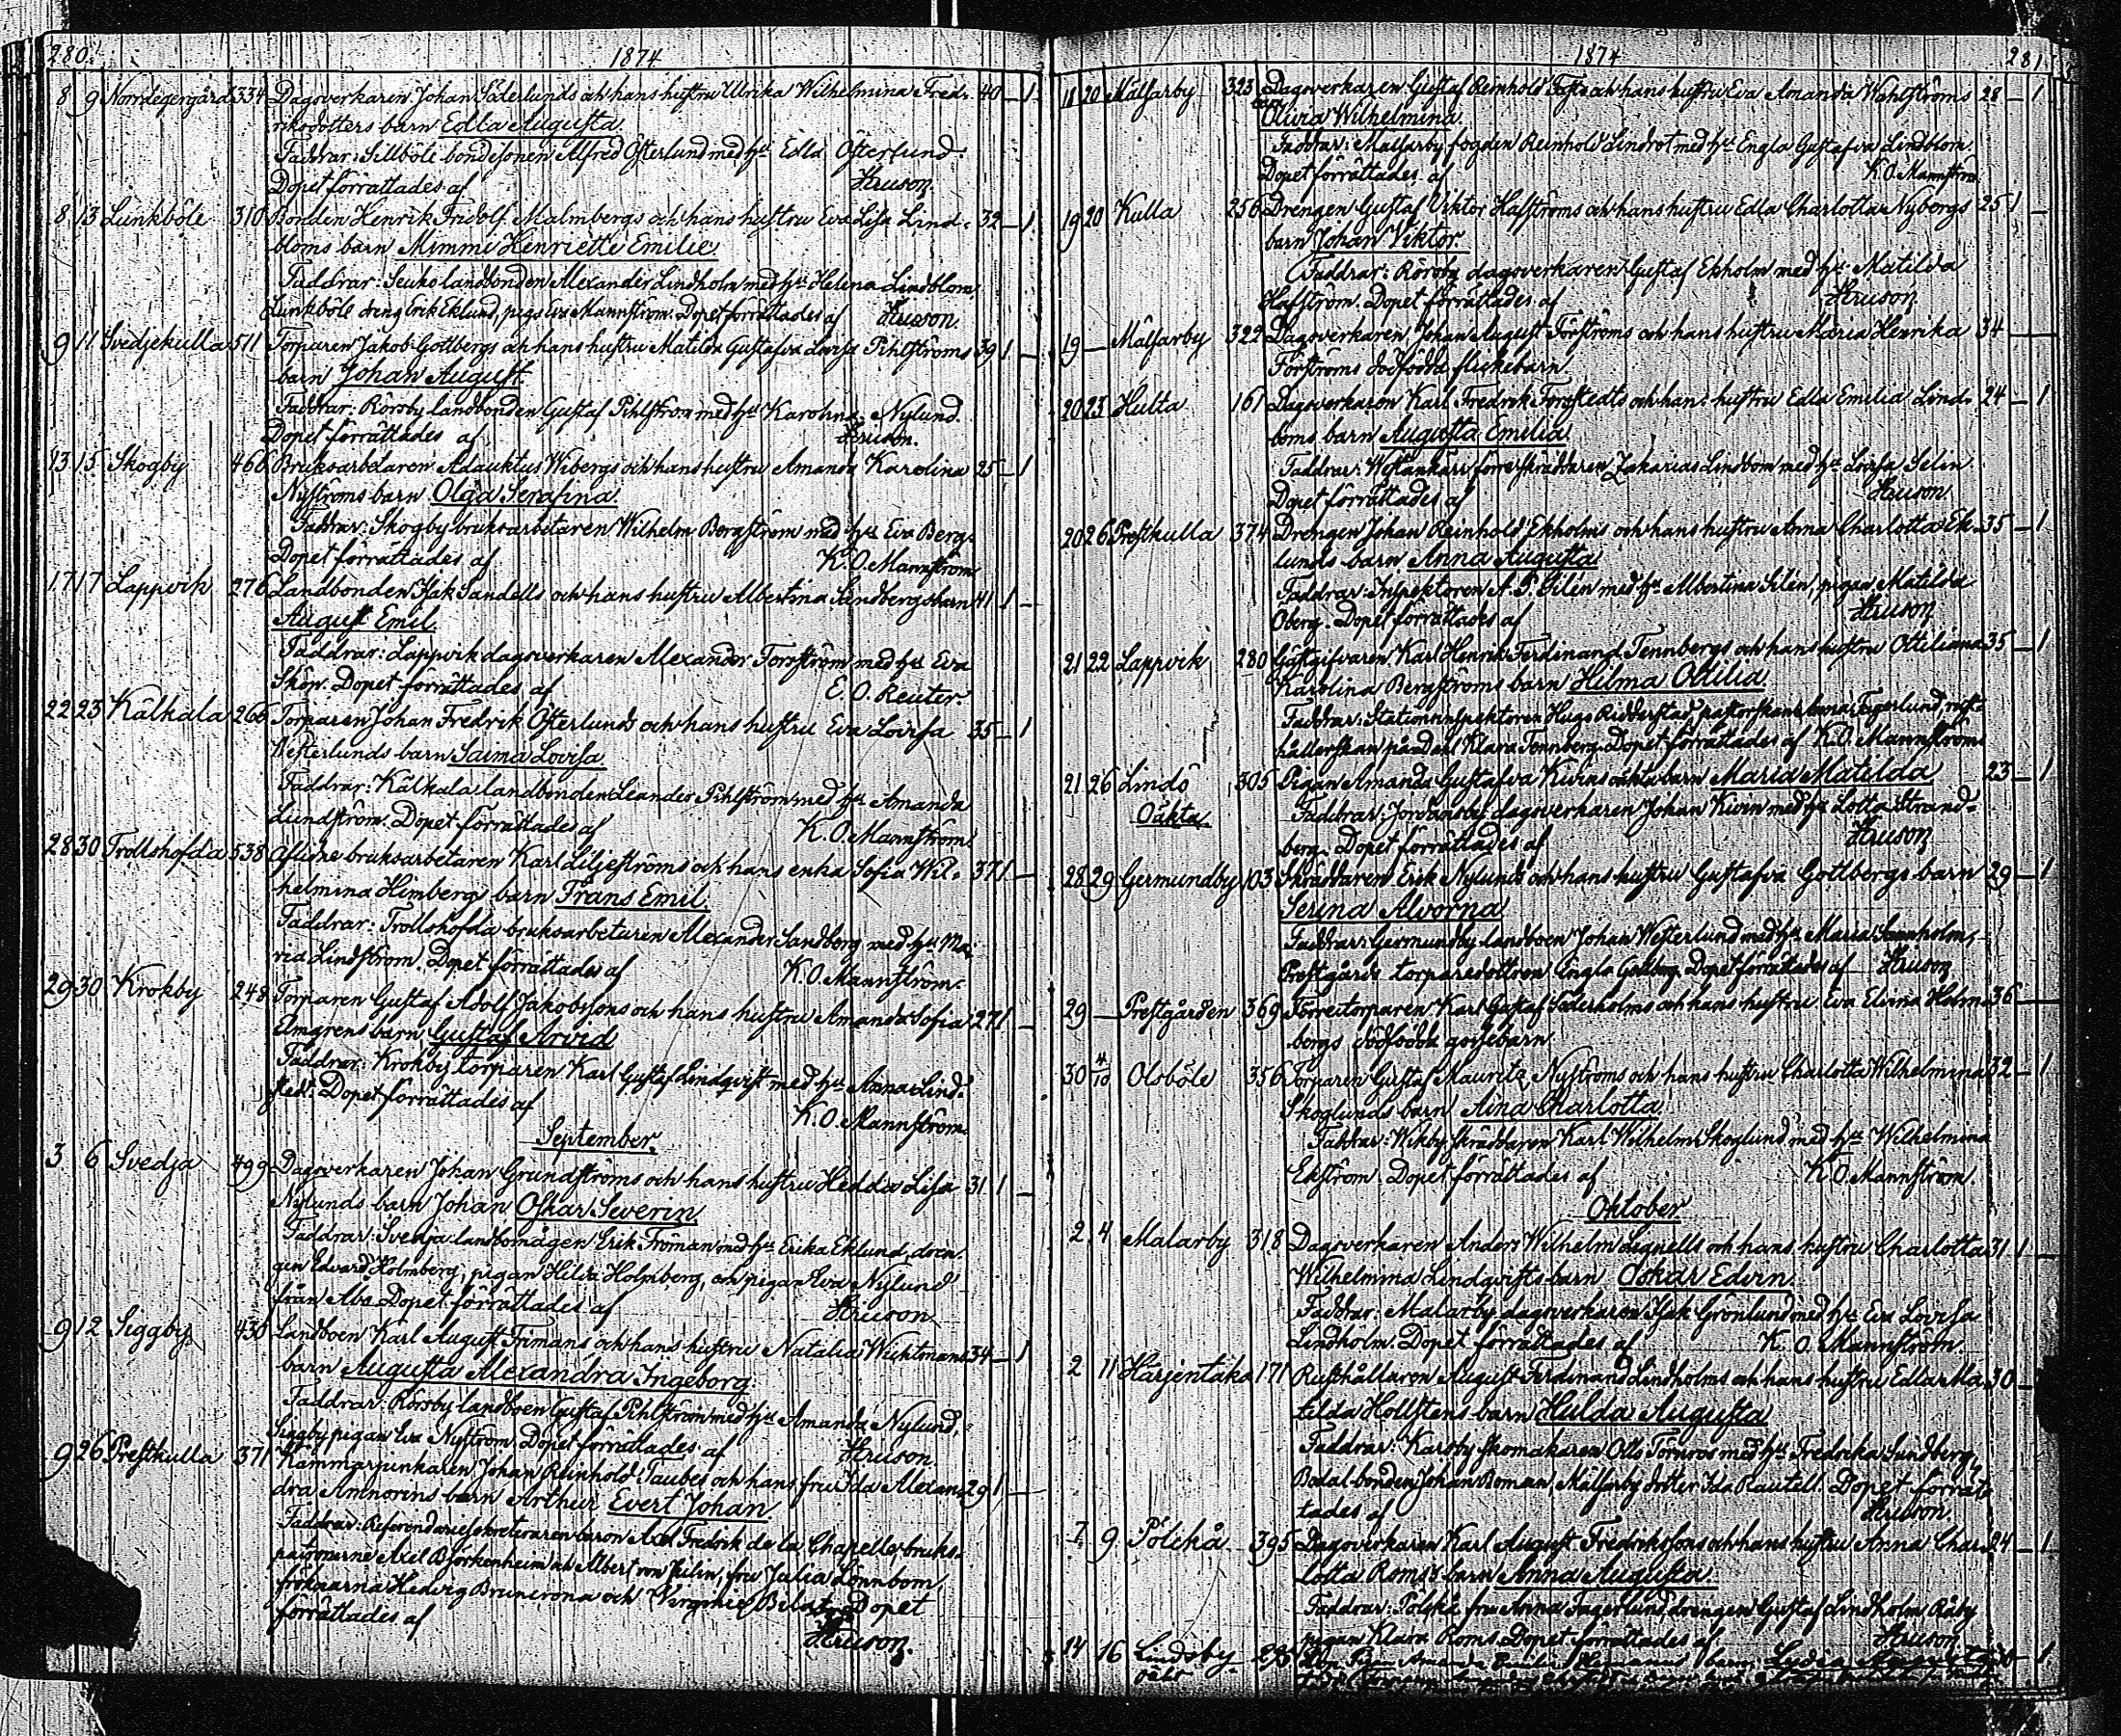 280. 1874
8 9 Norrdegergård 334 Dagsverkaren Johan Söderlunds och hans hustru Ulrika Wilhelmina Fred- 40 – 1
riksdotters barn Edla Augusta.
Faddrar: Sillböle bondesonen Alfred Österlund med hu Edla Österlund.
Dopet förrättades af
8 13 Lunkböle 310 Bonden Henrik Fridolf Malmbergs och hans hustru Eva Lisa Lind- 32 – 1
bloms barn Mimmi Henriette Emilie
Faddrar: landbonden Alexander Lindholm med hu Helena Lindblom,
Lunkböle dreng Erik Eklund, pigan Eva Mannström. Dopet förrättades af
9 11 Svedjekulla 511 Torparen Jakob Gottbergs och hans hustru Matilda Gustafva Lovisa Pihlströms 39 1 –
barn Johan August.
Faddrar: Rörsby landbonden Gustaf Pihlström med hu Karolina Nylund.
Dopet förrättades af
13 15 Skogby 466 Bruksarbetaren Adauktus Wibergs och hans hustru Amanda Karolina 25 – 1
Nyströms barn Olga Serafina.
Faddrar: Skogby bruksarbetaren Wilhelm Bergström med hu Eva Berg.
Dopet förrättades af K. O. Mannström
17 17 Lappvik 276 Landbonden Isak Sandells och hans hustru Albertina Sundbergs barn 41 1 –
August Emil.
Faddrar: Lappvik dagsverkaren Alexander Forsström med hu Eva
Skön. Dopet förrättades af E. O. Reuter.
22 23 Kälkala 266 Torparen Johan Fredrik Österlunds och hans hustru Eva Lovisa 35 – 1
Westerlunds barn Saima Lovisa.
Faddrar: Kälkala landbonden Leander Pihlström med hu Amanda
Lundström. Dopet förrättades af K. O. Mannström
28 30 Trollshofda 538 Aflidne bruksarbetaren Karl Liljeströms och hans enka Sofia Wil- 37 1 –
helmina Himbergs barn Frans Emil.
Faddrar: Trollshofda bruksarbetaren Alexander Sandberg med hu Ma-
ria Lindström. Dopet förrättades af K. O. Mannström.
29 30 Krokby 248 Torparen Gustaf Adolf Jakobssons och hans hustru Amanda Sofia 27 1 –
Elmgrens barn Gustaf Arvid
Faddrar: Krokby torparen Karl Gustaf Lindqvist med hu Anna Lind-
stedt. Dopet förrättades af K. O. Mannström.
September.
3 6 Svedja 499 Dagsverkaren Johan Grundströms och hans hustru Hedda Lisa 31 1 –
Nylunds barn Johan Oskar Severin
Faddrar: Svedja landbomågen Erik Fröman med hu Erika Eklund, dren-
gen Edvard Holmberg, pigan Hilda Holmberg, och pigan Eva Nylund
från Åbo. Dopet förrättades af
9 12 Siggby 430 Landboen Karl August Frimans och hans hustru Natalia Wichtmans 34 – 1
barn Augusta Alexandra Ingeborg.
Faddrar: Rörsby landboen Gustaf Pihlström med hu Amanda Nylund,
Siggby pigan Eva Nyström. Dopet förrättades af
9 26 Prestkulla 371 Kammarjunkaren Johan Reinhold Taubes och hans fru Ida Alexan- 29 1 –
dra Amnorins barn Arthur Evert Johan
Faddrar: Referendariesekreteraren baron Axel Fredrik de la Chapelle, bruks-
patronerne Axel Björkenheim och Albert von Julin, fru Julia Lönnbom,
fröknarna Hedvig Brunerona och Virginie. Dopet
förrättades af
1874 281
18 20 Mälsarby 323 Dagsverkaren Gustaf Reinhold och hans hustru Eva Amanda Wahlströms 28 – 1
barn Olivia Wilhelmina.
Faddrar: Mälsarby fogden Reinhold Lindrot med hu Engla Gustafva Lindblom.
Dopet förrättades af K. O. Mannström.
19 20 Kulla 256 Drengen Gustaf Viktor Hafströms och hans hustru Edla Charlotta Nybergs 25 1 –
barn Johan Viktor.
Faddrar: Rörsby dagsverkaren Gustaf Ekholm med hu Matilda
Hafström. Dopet förrättades af
19 – Mälsarby 322 Dagsverkaren Johan August Forströms och hans hustru Maria Henrika 34
Forströms dödfödda flickebarn.
20 23 Hulta 161 Dagsverkaren Karl Fredrik Forsstedts och hans hustru Edla Emilia Lind- 24 – 1
boms barn Augusta Emilia
Faddrar: Westankärr förre skräddaren Zakarias Lindbom med hu Lovisa Selin.
Dopet förrättades af
20 26 Prestkulla 374 Drengen Johan Reinhold Ekholms och hans hustru Anna Charlotta Ek- 35 – 1
lunds barn Anna Augusta
Faddrar: Inspektoren A. P. Silén med hu Albertina Silén, pigan Matilda
Öberg. Dopet förrättades af
21 22 Lappvik 280 Gästgifvaren Karl Henrik Ferdinand Tennbergs och hans hustru Ottiliana 35 – 1
Karolina Bergströms barn Hilma Ottilia.
Faddrar: Stationsinspektoren Hugo Ridderstad, Fagerlund, rust-
hållerskan Klara Tennberg. Dopet förrättades af K. O. Mannström
21 26 Lindö 305 Pigan Amanda Gustafva Kivins oäkta barn Maria Matilda 23 – 1
Oäkta. Faddrar: Jordansby dagsverkaren Johan Kivin med hu Lotta Strand-
berg. Dopet förrättades af
28 29 Germundby 103 Skräddaren Erik Nylunds och hans hustru Gustafva Gottbergs barn 29 – 1
Serina Alvorna
Faddrar: Germundby landboen Johan Westerlund med hu Maria,
Prestgårds torparedottren Engla Gottberg. Dopet förrättades af
29 – Prestgården 369 Förre torparen Karl Gustaf Söderholms och hans hustru Eva Elvina Holm- 36
bergs dödfödda gossebarn.
30 4/10 Olsböle 356 Torparen Gustaf Mauritz Nyströms och hans hustru Charlotta Wilhelmina 32 – 1
Skoglunds barn Aina Charlotta
Faddrar: Wikby skräddaren Karl Wilhelm Skoglund med hu Wilhelmina
Ekström. Dopet förrättades af K. O. Mannström.
Oktober
2 4 Malarby 318 Dagsverkaren Anders Wilhelm Lignells och hans hustru Charlotta 31 1 –
Wilhelmina Lindqvists barn Oskar Edvin.
Faddrar: Malarby dagsverkaren Isak Grönlund med hu Eva Lovisa
Lindholm. Dopet förrättades af K. O. Mannström.
2 11 Härjentäka 171 Rusthållaren August Ferdinand Lindholms och hans hustru Edla Ma- 30 –
tilda Hollstens barn Hulda Augusta
Faddrar: Karsby skomakaren Otto Törnroos med hu Fredrika Sundberg,
Bodal bonden Johan Boman, Mälsarby dotter Ida Rautell. Dopet förrät-
tades af
7 9 Pölskå 395 Dagsverkaren Karl August Fredrikssons och hans hustru Anna Char- 24 – 1
lotta Roms barn Anna Augusta.
Faddrar: Pölskå fru Anna Fagerlund, drengen Gustaf Lindholm, Råby
pigan Klara Roms. Dopet förrättades af
14 16 Lindsby 295 Pigan Amanda barn Lydia